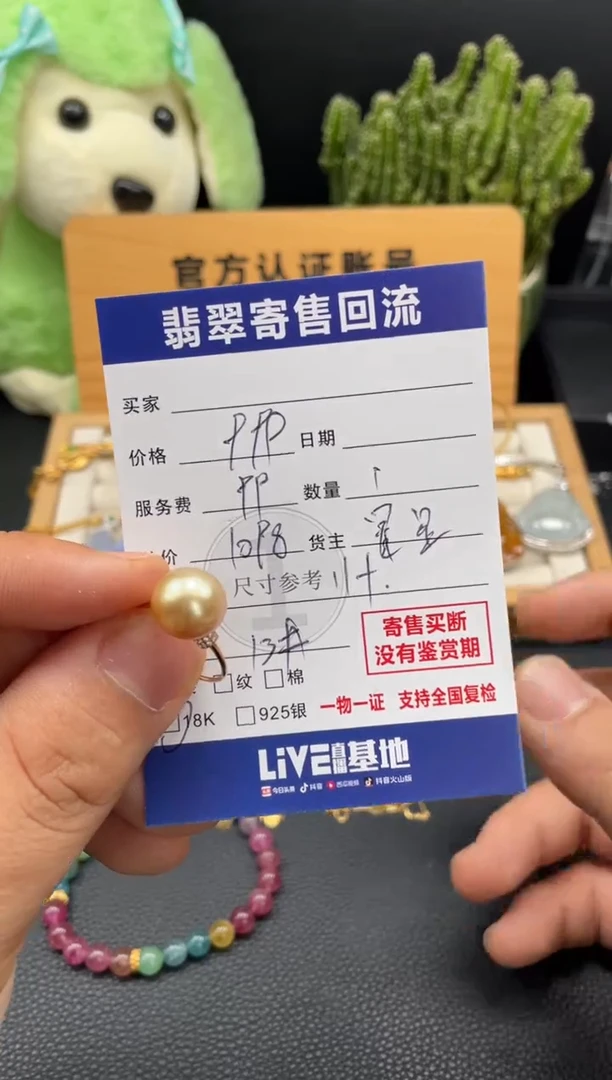 官方认证账号
翡翠寄售回流
买家
价格 日期
服务费 数量 1
价 1098 货主
尺寸参考
13A
寄售买断
没有鉴赏期
纹 棉
18K 925银 一物一证 支持全国复检
LiVE直播基地
今日头条 抖音 西瓜视频 抖音火山版